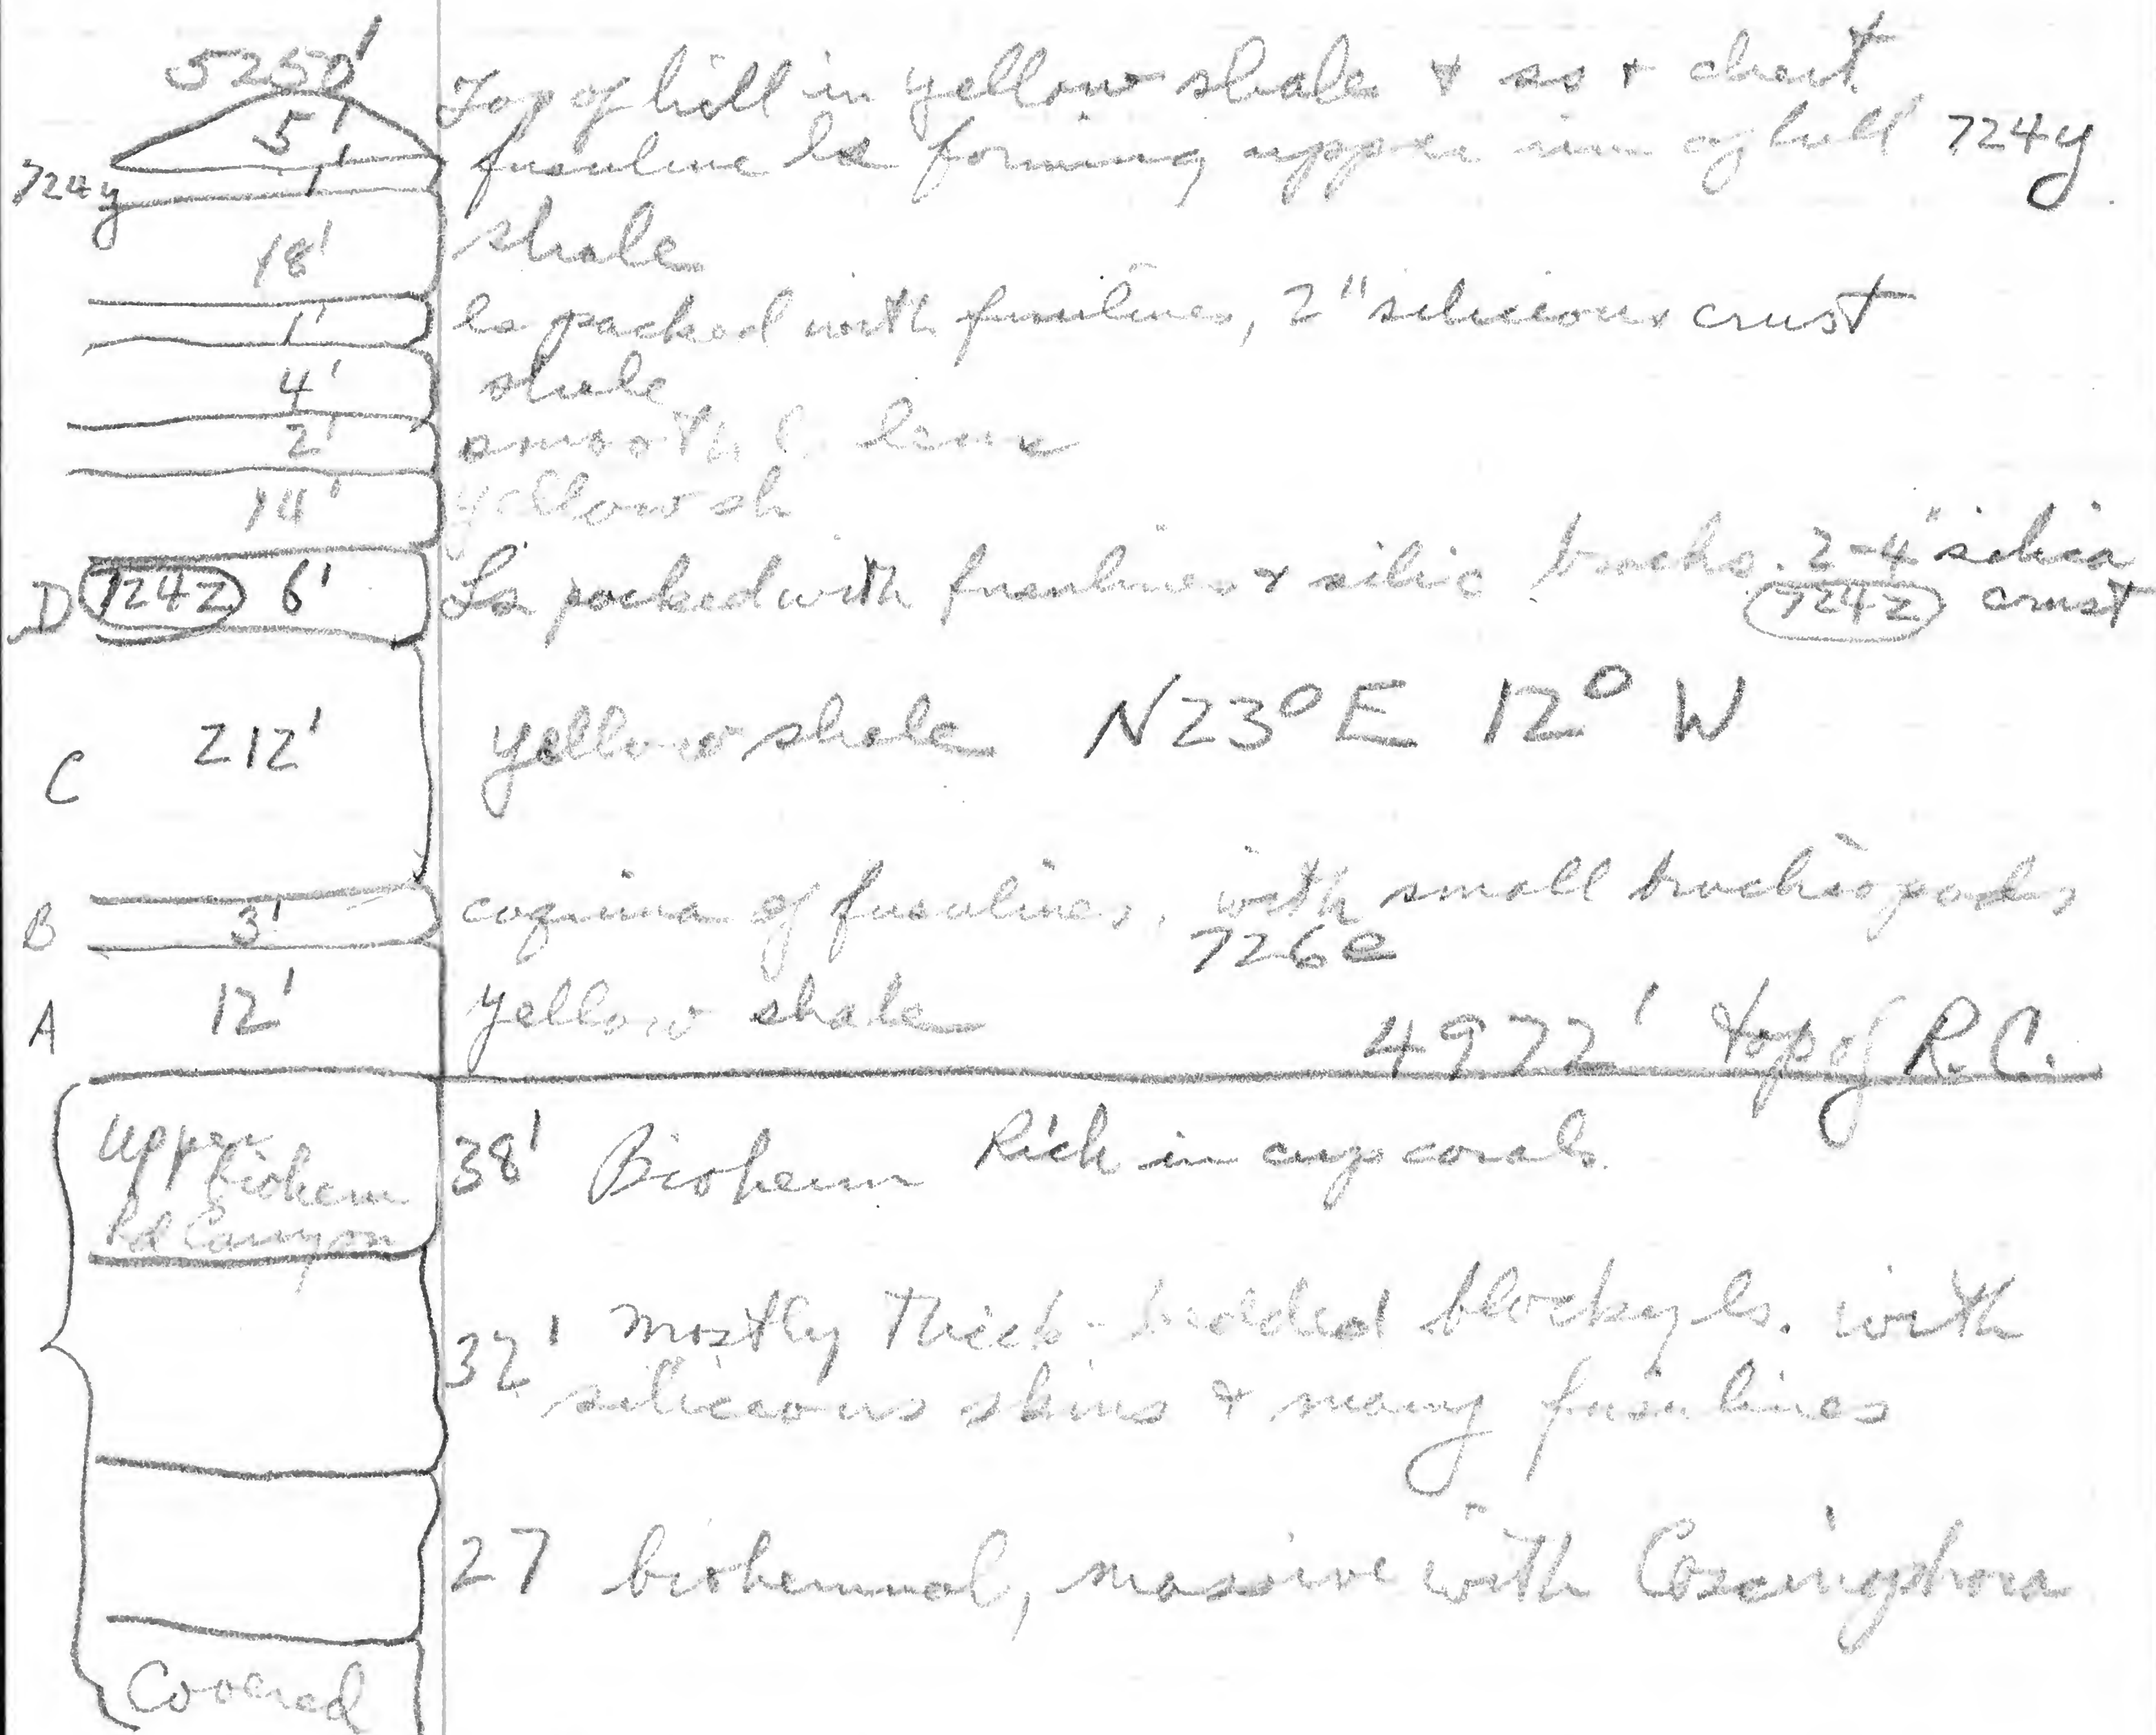 5250'
5' Top of hill in yellow shale & ss + chert
724y 1' fusuline ls forming upper rim of hill 724y
18' shale
1' ls packed with fusulines, 2" silicious crust
4' shale
2' smooth lens
14' yellow sh
D 724z 6' Ls packed with fusulines & silic brachs. 2-4" silica
724z crust
C 212' yellow shale N23°E 12° W
B 3' coquina of fusulines, with small brachiopods
726e
A 12' yellow shale
4972' top of R.C.
Upper 38' Bioherm Rich in cup corals
Bioherm
Rd Canyon
32' mostly thick-bedded blocky ls. with
siliceous skins & many fusulines
27 biohermal, massive with Coscinophora
Covered